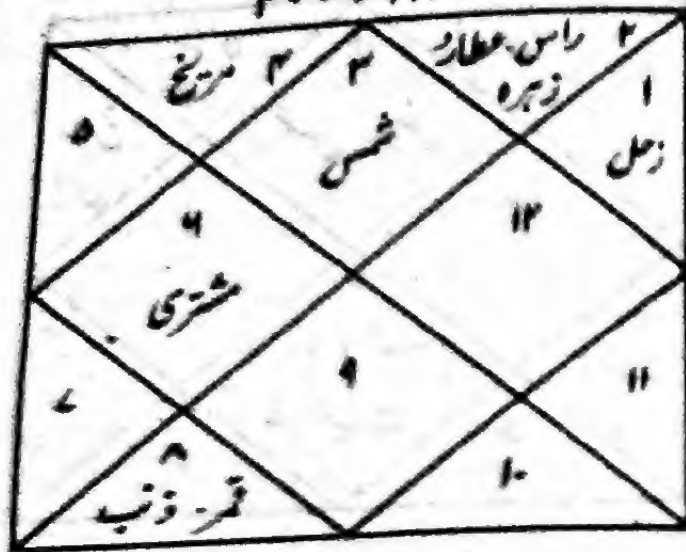 ۴ مریخ
۳
شمس
۲ راس. عطارد
زہرہ
۱
زحل
۵
۶
مشتری
۱۲
۷
۹
۱۱
۸
قمر. ذنب
۱۰